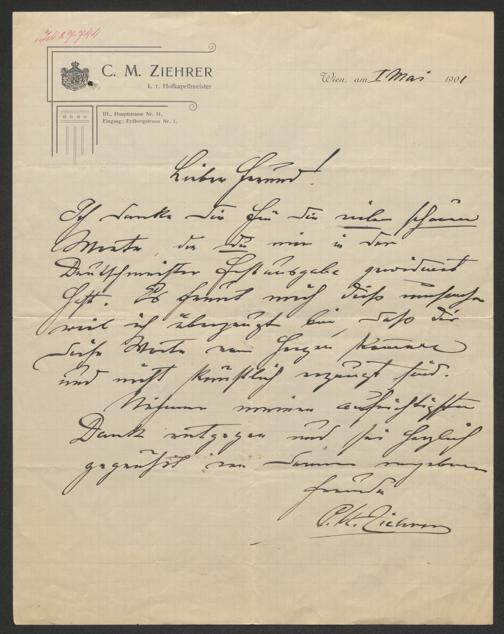 C. M. ZIEHRER
k. u. Hofkapellmeister
III., Hauptstrasse Nr. 31,
Eingang: Erdbergstrasse Nr. 1.
Wien, am 1 Mai 1901
Lieber Freund!
Ich danke dir für die vielen schönen
Worte, die du mir in der
Deutschmeister Festausgabe gewidmet
hast. Es freut mich dieß umsomehr
weil ich überzeugt bin, daß dir
diese Worte vom Herzen kamen
und nicht künstlich erzeugt sind.
Nehme meinen aufrichtigsten
Dank entgegen und sei herzlich
gegrüßt von deinem ergebenen
Freunde
C. M. Ziehrer